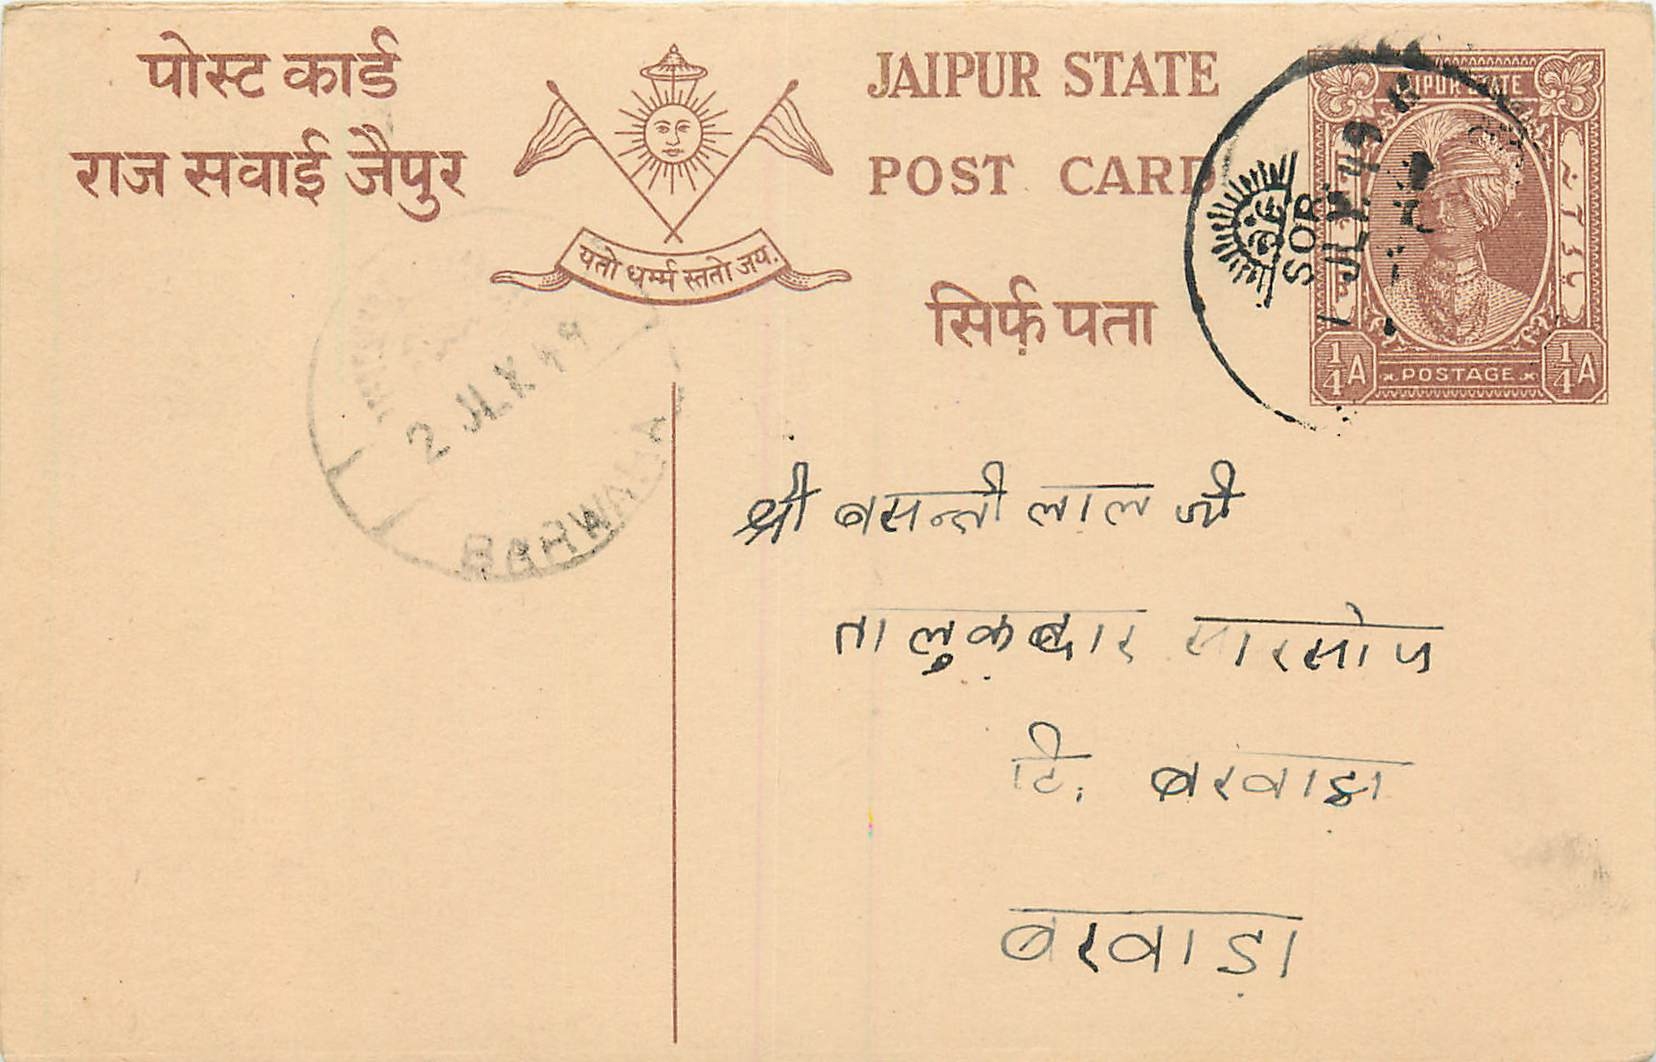 पोस्ट कार्ड
राज सवाई जैपुर
यतो धर्म्म स्ततो जय.
JAIPUR STATE
POST CARD
सिर्फ़ पता
JAIPUR STATE
¼A POSTAGE ¼A
SOR
JLY. 49
2 JLY 49
BARWARA
श्री बसन्ती लाल जी
तालुकद्दार सारसोप
टि. बरवाड़ा
बरवाड़ा